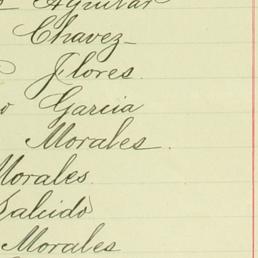 Aguilar
Chavez
Flores.
o Garcia
Morales.
Morales.
Salcido
Morales